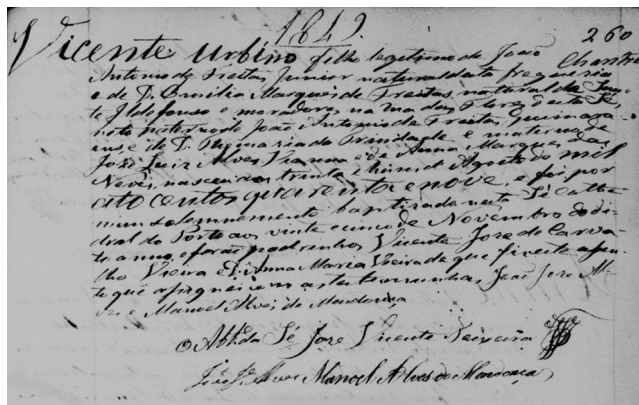 1849.
260
Vicente Urbino filho legitimo de João
Antonio de Freitas Junior natural desta freguezia
e de D. Emilia Marques de Freitas, natural de Sancto
Ildefonso e moradores na rua das Flores desta Sé,
neto paterno de João Antonio de Freitas Guimarães
e de D. Maria da Trindade e materno de
José Luiz Alves Vianna e de Anna Marques das
Neves, nasceu aos trinta e hum d'Agosto de mil
oito centos quarenta e nove, e foi por
mim solemnemente baptizado nesta Sé Cathe
dral do Porto aos vinte e cinco de Novembro do di
to anno, e forão padrinhos Vicente Jose de Carva
lho Vieira e D. Anna Maria Vieira de que fiz este assen
to que assignei com as testemunhas João Jose
e Manoel Alves de Mendonça
O Abb. da Sé Jose Vicente Teixeira
Manoel Alves de Mendonça